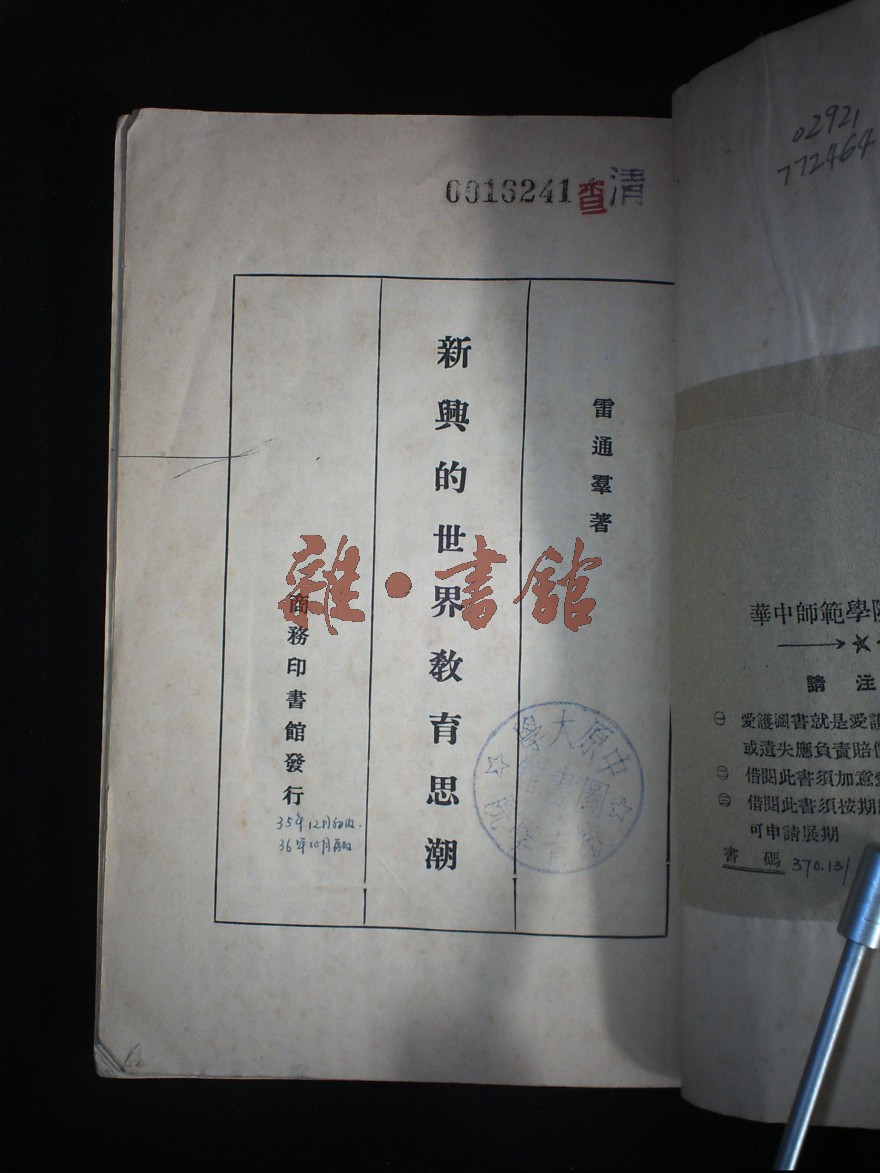 0016241
查清
雷通羣著
新興的世界教育思潮
商務印書館發行
35年12月初版.
36年10月再版
雜·書館
中原大學
圖書館
02921
772464
華中師範學院
請注
㊀ 愛護圖書就是愛護
或遺失應負責賠償
㊁ 借閱此書須加意愛
㊂ 借閱此書須按期
可申請展期
書碼 370.13/